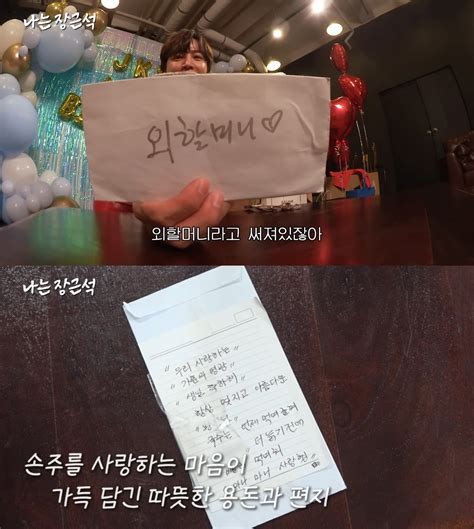 나는 장근석
J K
B
외할머니♡
외할머니라고 써져있잖아
나는 장근석
〃 우리 사랑하는
생일 축하해
항상 멋지고 아름다운
언제
더 늙기전에
사랑
손주를 사랑하는 마음이
가득 담긴 따뜻한 용돈과 편지